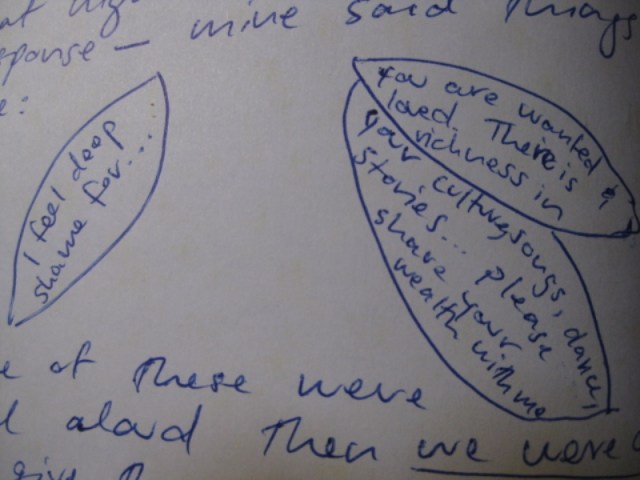 mine said Things
ponse —
e:
I feel deep
shame for...
You are wanted &
loved. There is
richness in
your culture, songs, dance,
stories... please
share your
wealth with me
e of these were
aloud Then we were
give